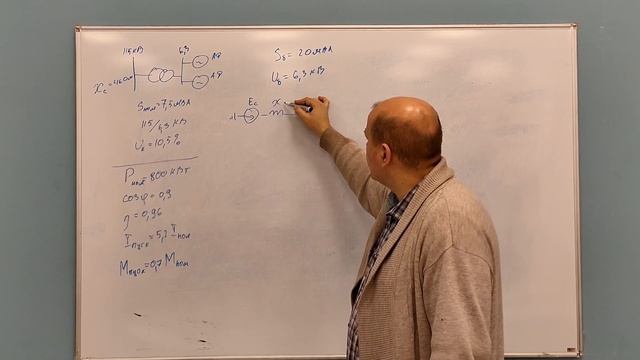 115 кВ
6,3
АД
АД
Sном=7,5 МВА
115/6,3 кВ
Uк = 10,5%
Pном=800 кВт
cosφ=0,9
η=0,96
Mпуск=0,7 Mном
Sб = 20 МВА
Uб = 6,3 кВ
Eс
x